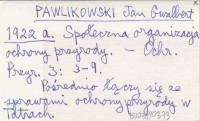 PAWLIKOWSKI Jan Gwalbert
1922 a. Społeczna organizacja
ochrony przyrody. - Ochr.
Przyr. 3: 3-9.
Pośrednio łączy się ze
sprawami ochrony przyrody w
Tatrach.